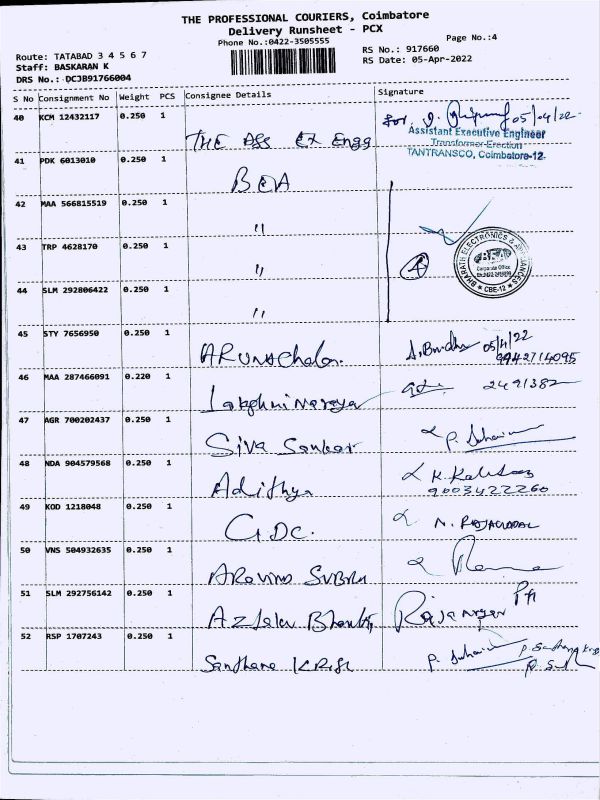 THE PROFESSIONAL COURIERS, Coimbatore
Delivery Runsheet - PCX
Phone No.:0422-3505555
Page No.:4
Route: TATABAD 3 4 5 6 7
RS No.: 917660
Staff: BASKARAN K
RS Date: 05-Apr-2022
DRS No.: DCJB91766004
S No Consignment No Weight PCS Consignee Details Signature
40 KCM 12432117 0.250 1 THE Ass Ex Engg for. 05/04/22
Assistant Executive Engineer
Transformer Erection
TANTRANSCO, Coimbatore-12.
41 PDK 6013010 0.250 1 BEA
42 MAA 566815519 0.250 1 "
43 TRP 4628170 0.250 1 " 4
BHARATH ELECTRONICS & APPLIANCES
BEA
Corporate Office
CBE-12
44 SLM 292806422 0.250 1 "
45 STY 7656950 0.250 1 ARUNAchalam. 05/4/22
9942714095
46 MAA 287466091 0.220 1 Lakshminaraya 2491382
47 AGR 700202437 0.250 1 Siva Sankar P.
48 NDA 904579568 0.250 1 Adithya K.
9003422260
49 KOD 1218048 0.250 1 G.D.C. N. RAJAGOPAL
50 VNS 504932635 0.250 1 ARavind SUBRA
51 SLM 292756142 0.250 1 Rajanryan
52 RSP 1707243 0.250 1 Santhana KRish P.